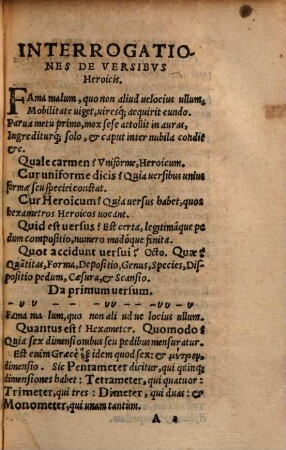 INTERROGATIO-
NES DE VERSIBVS
Heroicis.
FAma malum, quo non aliud uelocius ullum,
Mobilitate uiget, uiresq; acquirit eundo.
Parua metu primo, mox sese attollit in auras,
Ingrediturq; solo, & caput inter nubila condit
&c.
Quale carmen? Vniforme, Heroicum.
Cur uniforme dicis? Quia versibus unius
formæ seu speciei constat.
Cur Heroicum? Quia uersus habet, quos
hexametros Heroicos uocant.
Quid est versus? Est certa, legitimáque pe
dum compositio, numero modóque finita.
Quot accidunt versui? Octo. Quæ?
Quãtitas, Forma, Depositio, Genus, Species, Dis-
positio pedum, Cæsura, & Scansio.
Da primum versum.
Fama ma lum, quo non ali ud ue locius ullum.
Quantus est? Hexameter. Quomodo?
Quia sex dimensionibus seu pedibus mensuratur.
Est enim Græcè ἓξ idem quod sex: & μέτρον,
dimensio. Sic Pentameter dicitur, qui quinq;
dimensiones habet: Tetrameter, qui quatuor:
Trimeter, qui tres: Dimeter, qui duas: &
Monometer, qui unam tantùm.
A 2